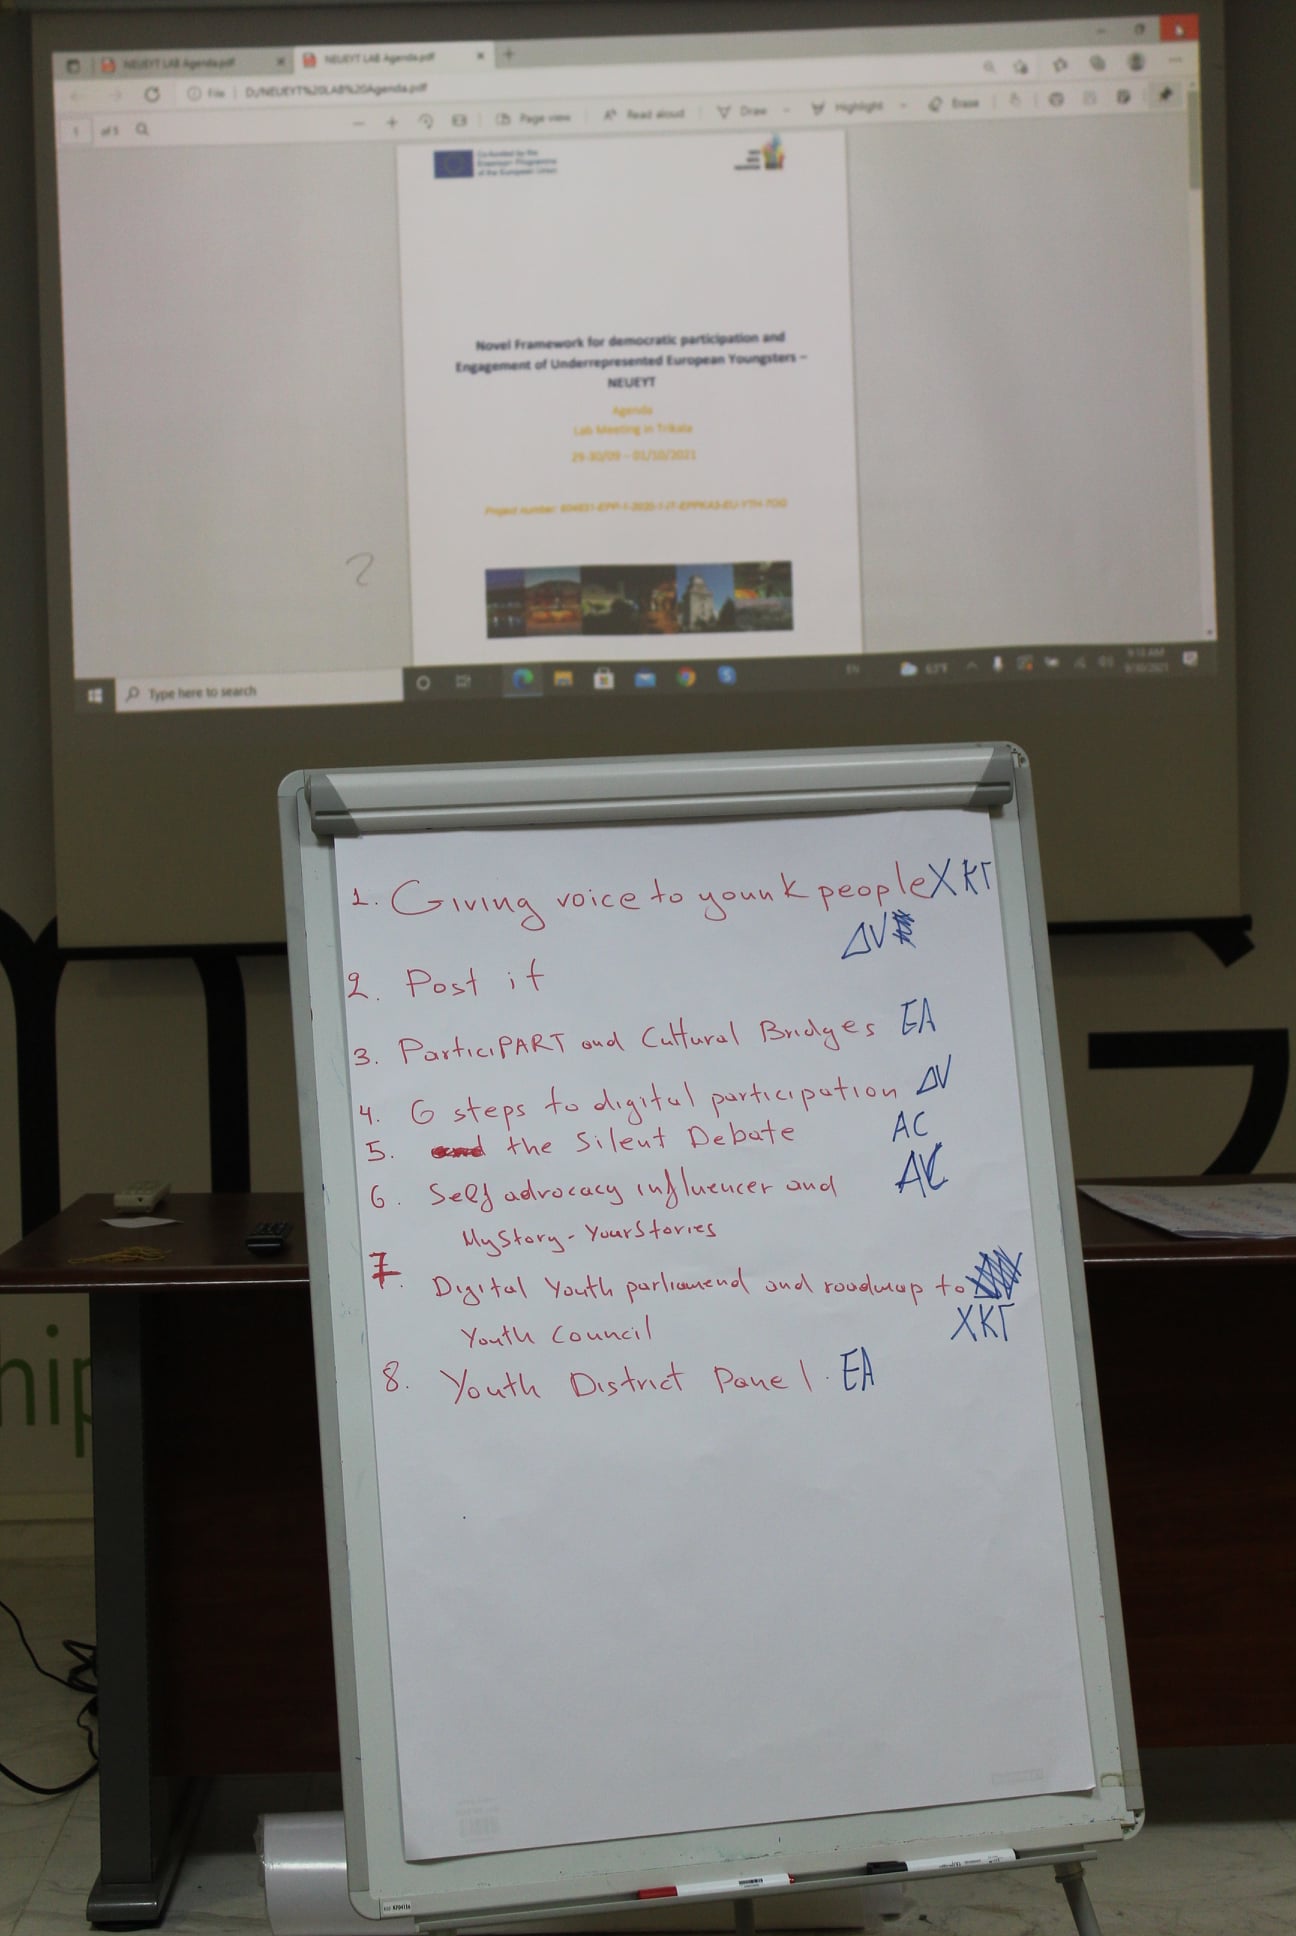 NEUEYT LAB Agenda.pdf
NEUEYT LAB Agenda.pdf
File D:/NEUEYT%20LAB%20Agenda.pdf
1 of 5
Page view
Read aloud
Draw
Highlight
Erase
Co-funded by the
Erasmus+ Programme
of the European Union
Novel Framework for democratic participation and
Engagement of Underrepresented European Youngsters –
NEUEYT
Agenda
Lab Meeting in Trikala
29-30/09 – 01/10/2021
Project number:
Type here to search
EN
63°F
9:10 AM
9/30/2021
1. Giving voice to younk people ΧΚΓ
ΔV
2. Post it
3. ParticiPART and Cultural Bridges EA
4. 6 steps to digital participation ΔV
5. the Silent Debate AC
6. Self advocacy influencer and AC
MyStory - YourStories
7. Digital Youth parliamend and roadmap to
Youth Council ΧΚΓ
8. Youth District Panel. EA
hip